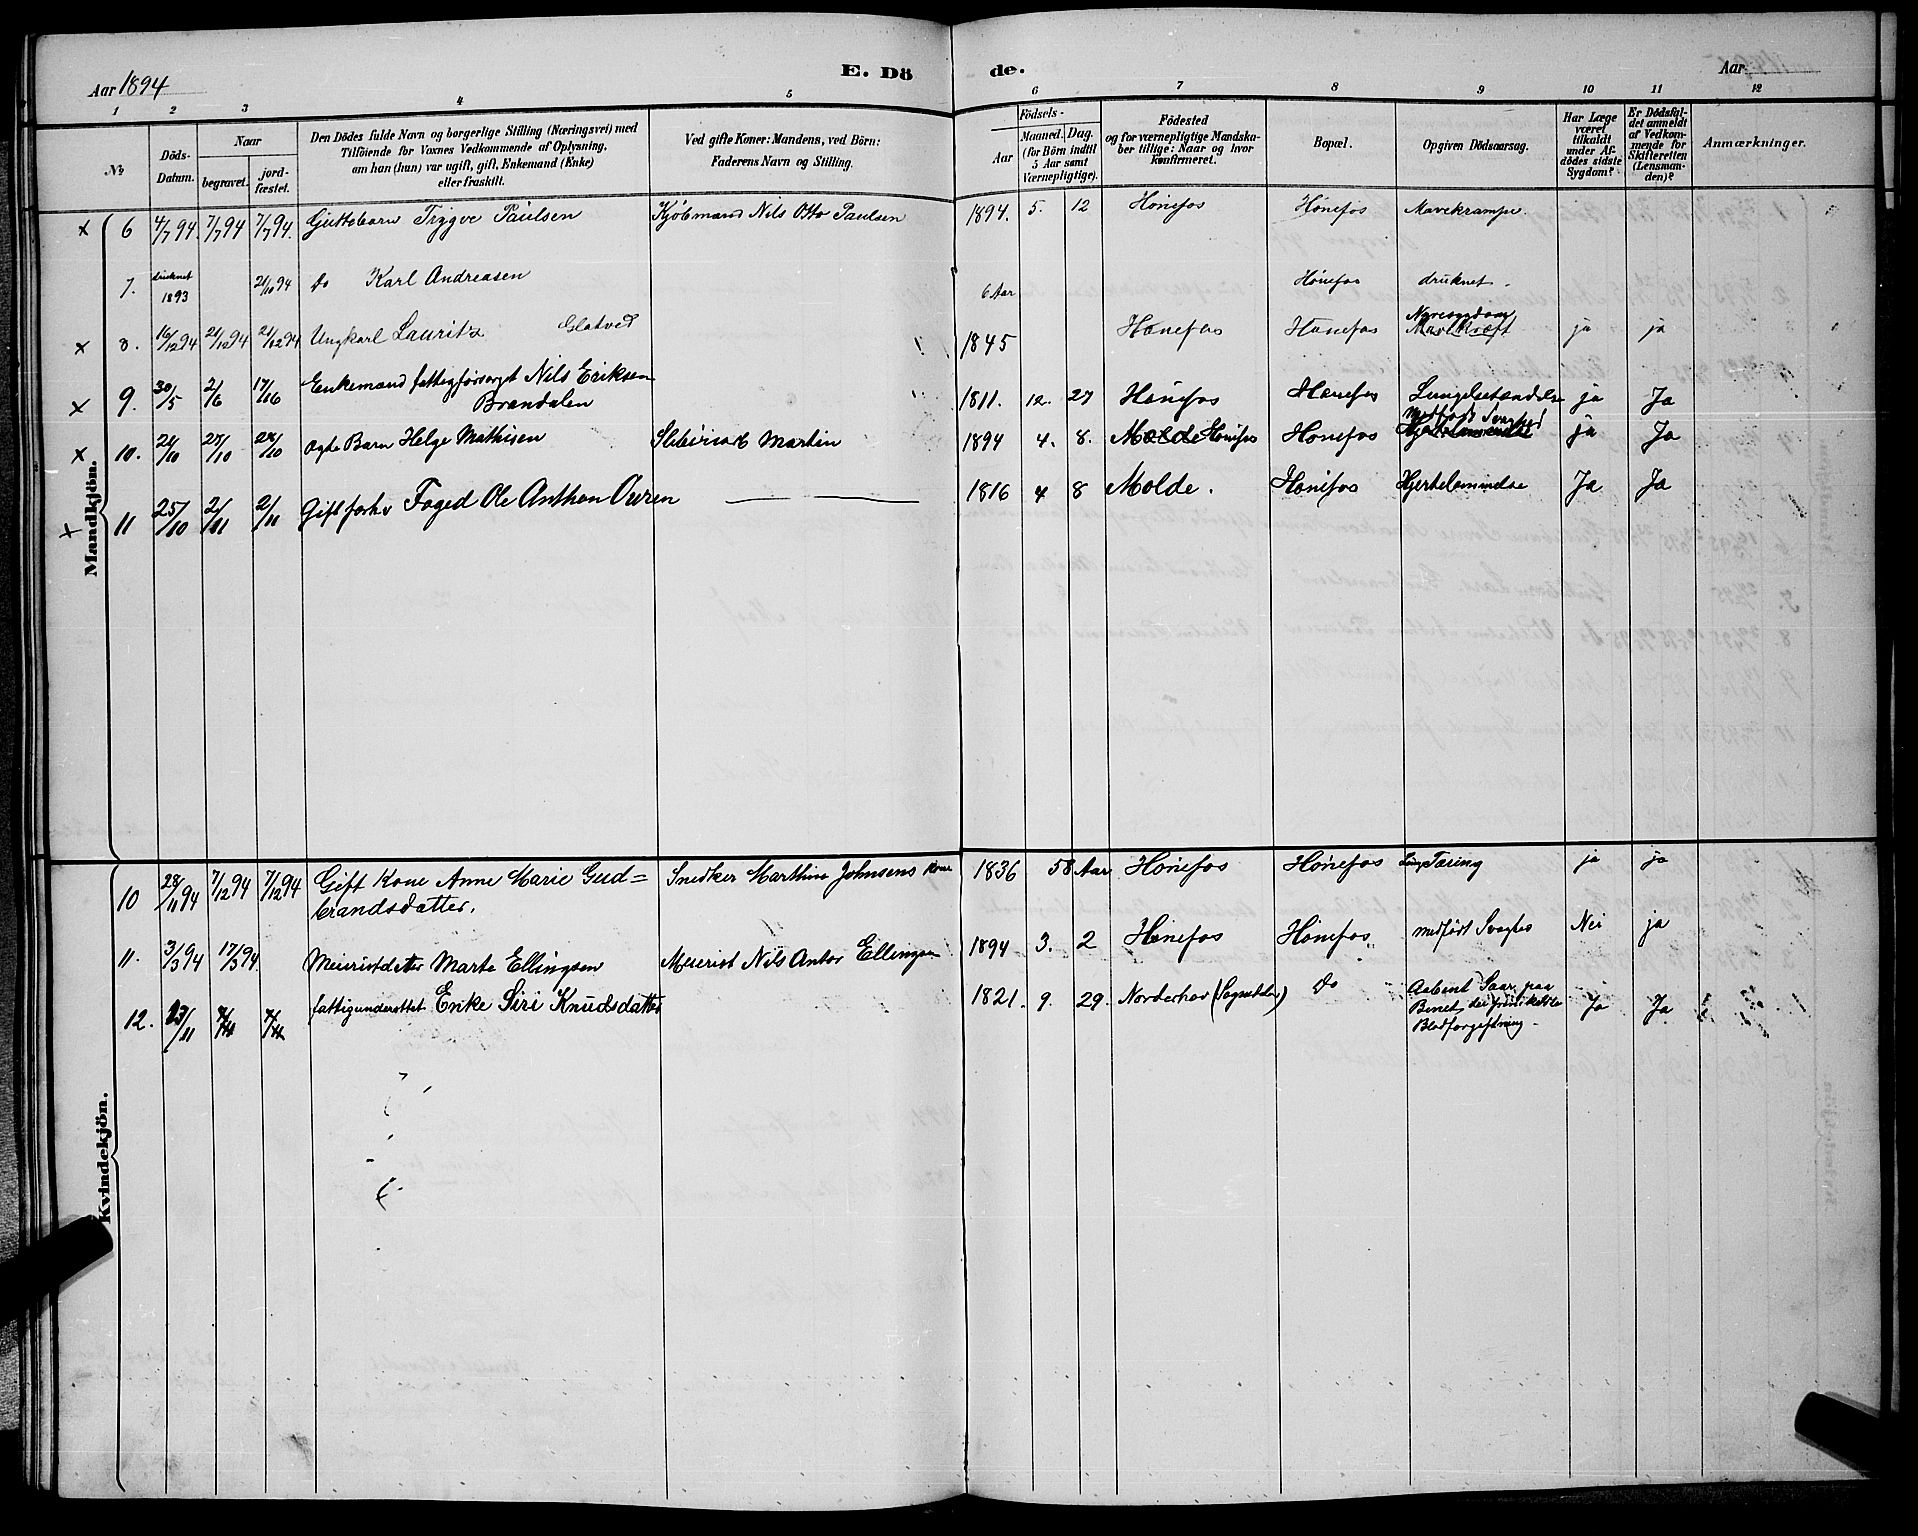 Aar 1894
E. Dö
de.
Aar
1 2 3 4 5 6 7 8 9 10 11 12
No
Döds-
Datum.
Naar
begravet. jord-
fæstet.
Den Dödes fulde Navn og borgerlige Stilling (Næringsvei) med
Tilföiende for Voxnes Vedkommende af Oplysning,
om han (hun) var ugift, gift, Enkemand (Enke)
eller fraskilt.
Ved gifte Koner: Mandens, ved Börn:
Faderens Navn og Stilling.
Födsels-
Aar
Maaned. Dag.
(for Börn indtil
5 Aar samt
Værnepligtige).
Födested
og for værnepligtige Mandska-
ber tillige: Naar og hvor
Konfirmeret.
Bopæl.
Opgiven Dödsaarsag.
Har Læge
været
tilkaldt
under Af-
dödes sidste
Sygdom?
Er Dödsfal-
det anmeldt
af Vedkom-
mende for
Skifteretten
(Lensman-
den)?
Anmærkninger.
Mandkjön.
x 6 4/7 94. 7/7 94 7/7 94. Guttebarn Trygve Paulsen Kjöbmand Nils Otto Paulsen 1894. 5. 12 Hönefos Hönefos Mavekrampe.
7. druknet 1893 21/10 94 Do Karl Andreasen 6 Aar Hönefos druknet.
x 8. 16/12 94 21/12 94 21/12 94 Ungkarl Lauritz Glatved 1845 Hönefos Hönefos Nyresygdom ja ja
x 9. 30/5 2/6 17/16 Enkemand fattigforsørget Nils Eriksen
Brændalen 1811. 12. 27 Hönefos Hönefos Lungebetændelse ja Ja
x 10. 21/10 25/10 28/10 ægte Barn Helge Mathisen Sliberiarb Martin 1894 4. 8. Molde Hönefos Hönefos medfödt Svaghed Hjertelammelse ja Ja
x 11 25/10 2/11 2/11 Gift forhv Foged Ole Anthon Owren 1816 4 8 Molde. Hönefos Hjertelammelse Ja Ja
Kvindekjön.
10 28/11 94 7/12 94 7/12 94 Gift Kone Anne Marie Gud=
brandsdatter. Snedker Marthin Johnsens Kone 1836 58 Aar Hönefos Hönefos Lunge Tæring ja ja
11. 3/3 94 17/3 94. Meieristdatter Marte Ellingsen Meierist Nils Anton Ellingsen 1894 3. 2 Hönefos Hönefos medfödt Svaghed Nei ja
12. 23/11 fattigunderstøttet Enke Siri Knudsdatter 1821. 9. 29. Norderhov Do Aabent Saar paa
Benet, derfrem
Blodforgiftning. Ja Ja